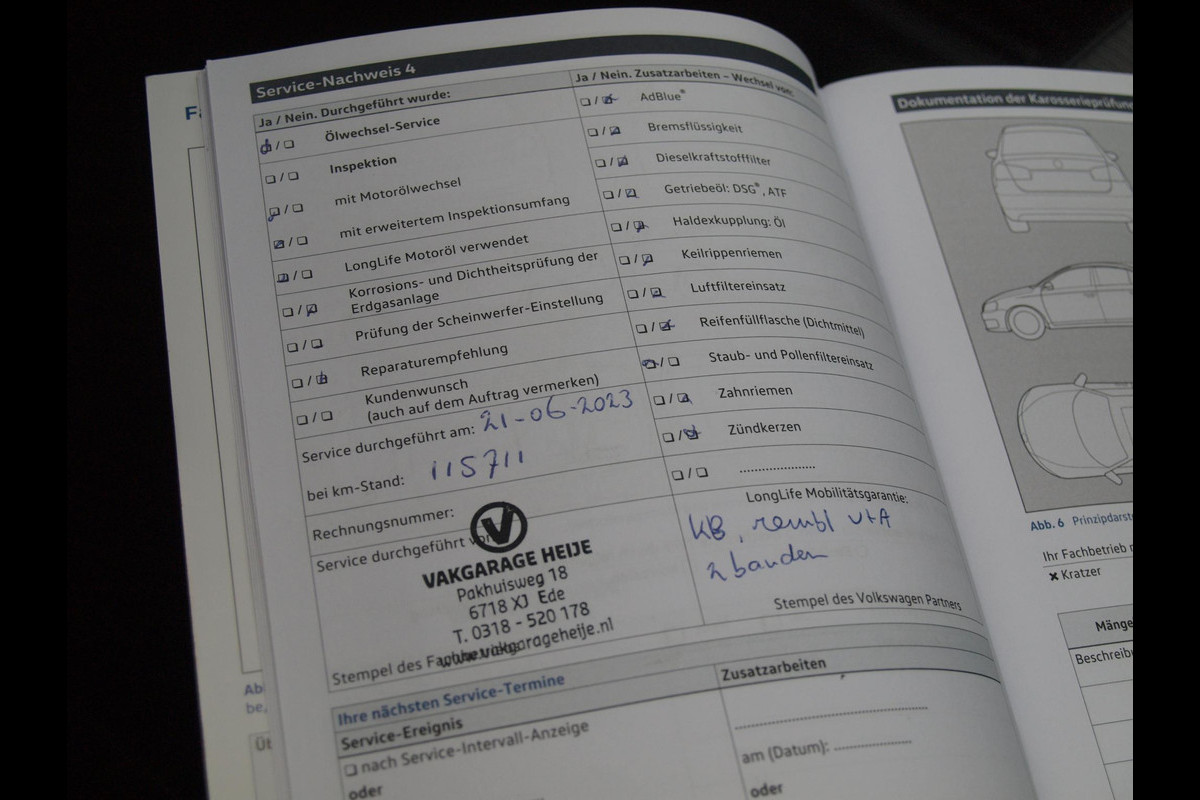 Service-Nachweis 4
Ja / Nein. Durchgeführt wurde:
Ölwechsel-Service
Inspektion
mit Motorölwechsel
mit erweitertem Inspektionsumfang
LongLife Motoröl verwendet
Korrosions- und Dichtheitsprüfung der
Erdgasanlage
Prüfung der Scheinwerfer-Einstellung
Reparaturempfehlung
Kundenwunsch
(auch auf dem Auftrag vermerken)
Service durchgeführt am: 21-06-2023
bei km-Stand: 115711
Rechnungsnummer:
Service durchgeführt von:
VAKGARAGE HEIJE
Pakhuisweg 18
6718 XJ Ede
T. 0318 - 520 178
www.vakgarageheije.nl
Stempel des
Ja / Nein. Zusatzarbeiten – Wechsel von:
AdBlue®
Bremsflüssigkeit
Dieselkraftstofffilter
Getriebeöl: DSG®, ATF
Haldexkupplung: Öl
Keilrippenriemen
Luftfiltereinsatz
Reifenfüllflasche (Dichtmittel)
Staub- und Pollenfiltereinsatz
Zahnriemen
Zündkerzen
LongLife Mobilitätsgarantie:
KB, rembl v+A
2 banden
Stempel des Volkswagen Partners
Ihre nächsten Service-Termine
Service-Ereignis
nach Service-Intervall-Anzeige
oder
Zusatzarbeiten
am (Datum):
oder
Dokumentation der Karosserieprüfung
Abb. 6 Prinzipdarst
Ihr Fachbetrieb
Kratzer
Mänge
Beschreib
Ab
be,
Üt